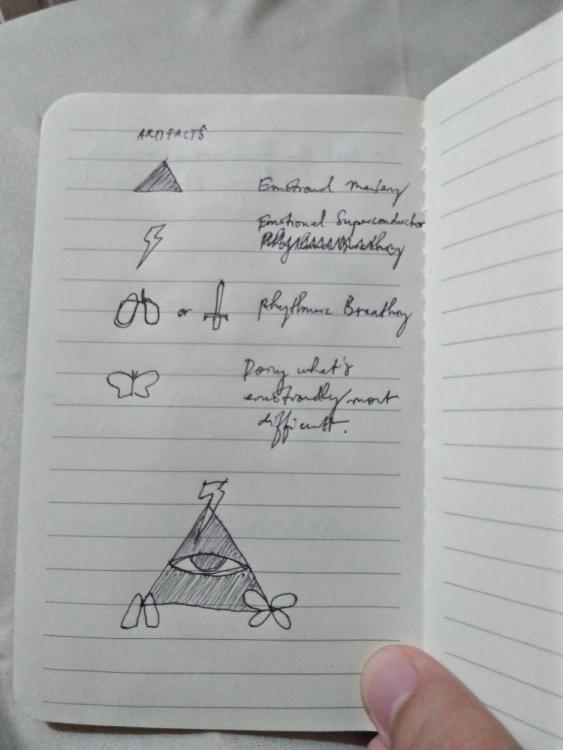 ARTIFACTS
Emotional Mastery
Emotional Superconductor
or Rhythmic Breathing
Doing what's
emotionally most
difficult.